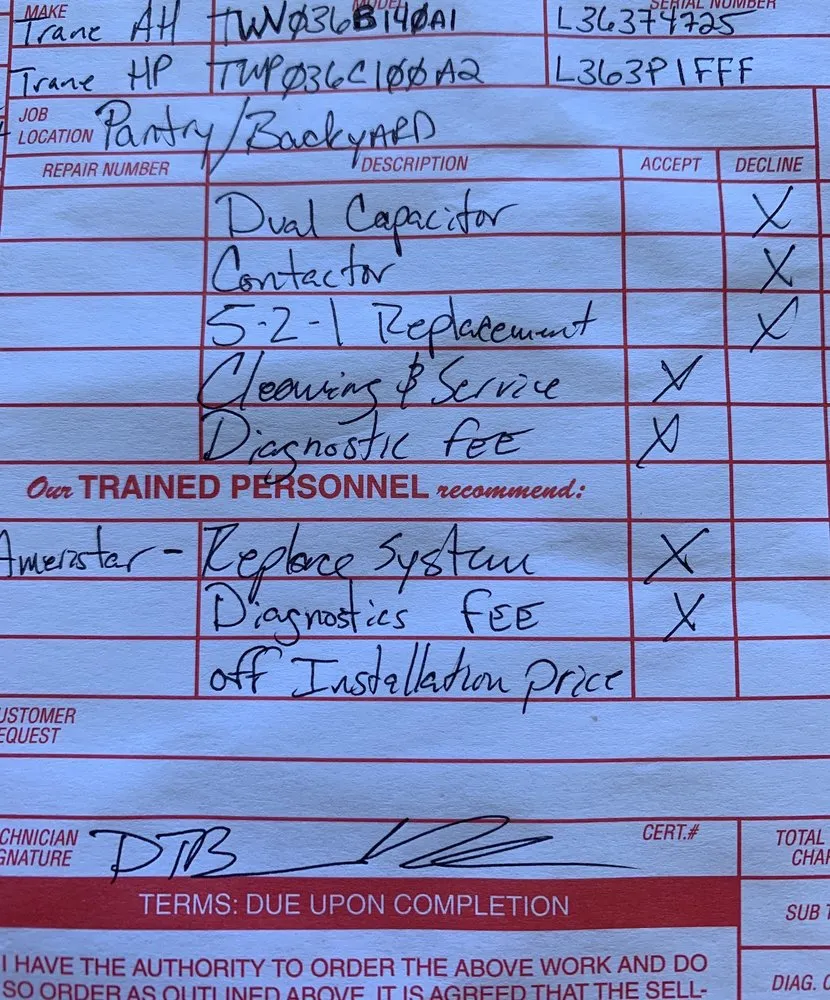 MAKE MODEL SERIAL NUMBER
Trane AH TWV036B140A1 L36374725
Trane HP TWP036C100A2 L363P1FFF
JOB LOCATION Pantry/BackyARD
REPAIR NUMBER DESCRIPTION ACCEPT DECLINE
Dual Capacitor X
Contactor X
5-2-1 Replacement X
Cleaning & Service X
Diagnostic FEE X
Our TRAINED PERSONNEL recommend:
Ameristar - Replace System X
Diagnostics FEE X
off Installation price
USTOMER
EQUEST
CHNICIAN
GNATURE
DTB
CERT.#
TOTAL
CHAR
TERMS: DUE UPON COMPLETION
SUB T
I HAVE THE AUTHORITY TO ORDER THE ABOVE WORK AND DO
SO ORDER AS OUTLINED ABOVE. IT IS AGREED THAT THE SELL-
DIAG. C